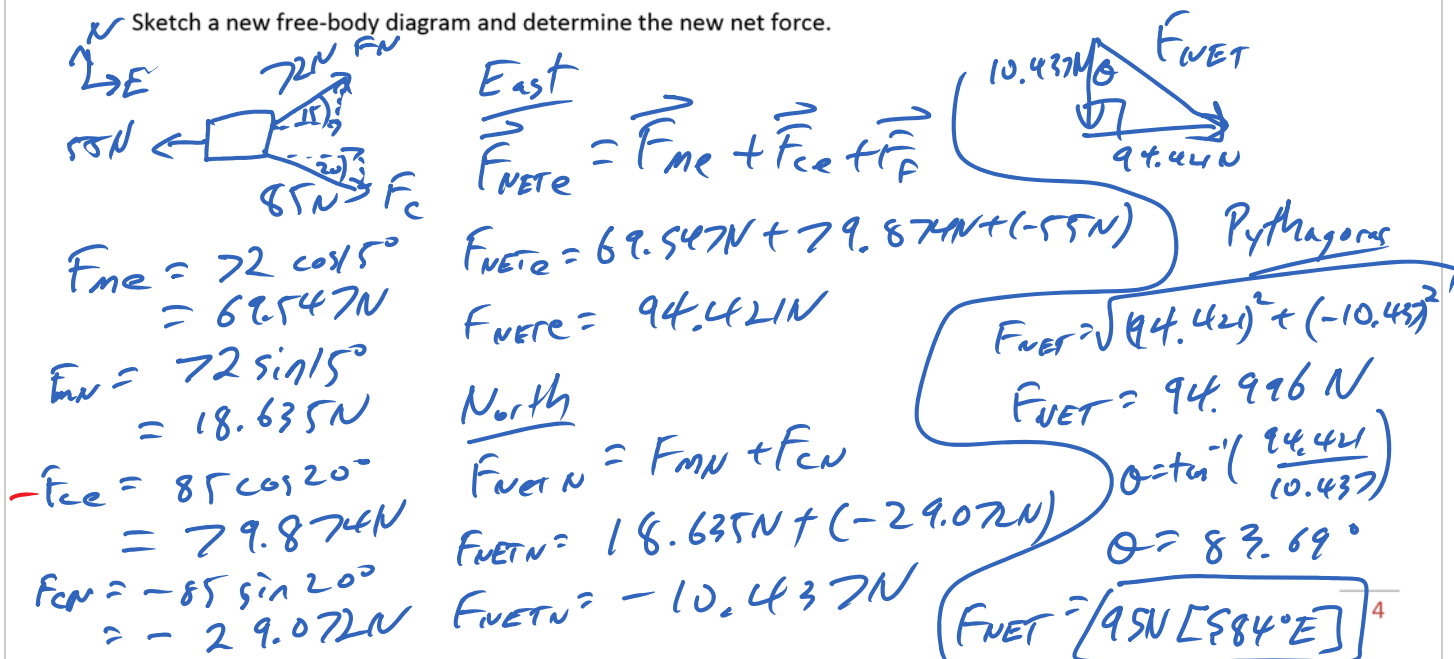 Sketch a new free-body diagram and determine the new net force.
N
E
72N FN
15
55N
20
85N FC
Fme = 72 cos15°
= 69.547N
FmN = 72 sin15°
= 18.635N
-Fce = 85 cos20°
= 79.874N
FCN = -85 sin20°
= -29.072N
East
FNETe = Fme + Fce + FF
FNETe = 69.547N + 79.874N + (-55N)
FNETe = 94.421N
North
FNET N = FMN + FCN
FNETN = 18.635N + (-29.072N)
FNETN = -10.437N
10.437N θ FNET
94.421N
Pythagoras
FNET = √(94.421)² + (-10.437)²
FNET = 94.996 N
θ = tan⁻¹(94.421/10.437)
θ = 83.69°
FNET = 95N [S84°E]
4